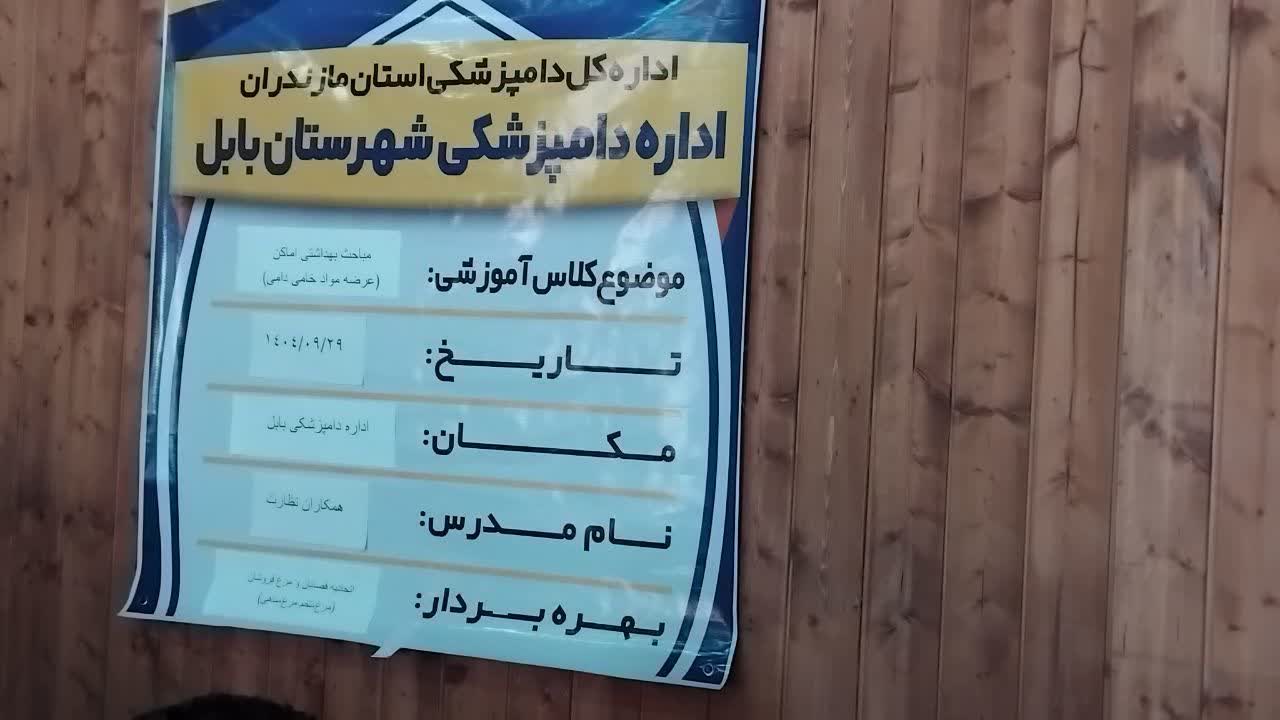 اداره کل دامپزشکی استان مازندران
اداره دامپزشکی شهرستان بابل
موضوع کلاس آموزشی:
مباحث بهداشتی اماکن
(عرضه مواد خامی دامی)
تاریخ:
۱۴۰۴/۰۹/۲۹
مکان:
اداره دامپزشکی بابل
نام مدرس:
همکاران نظارت
بهره بردار:
اتحادیه قصابان و مرغ فروشان